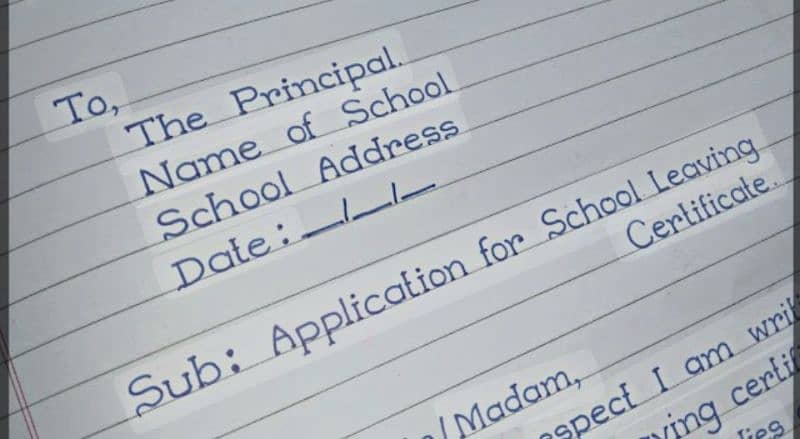 To,
The Principal.
Name of School
School Address
Date: _/_/_
Sub: Application for School Leaving
Certificate.
/Madam,
I am